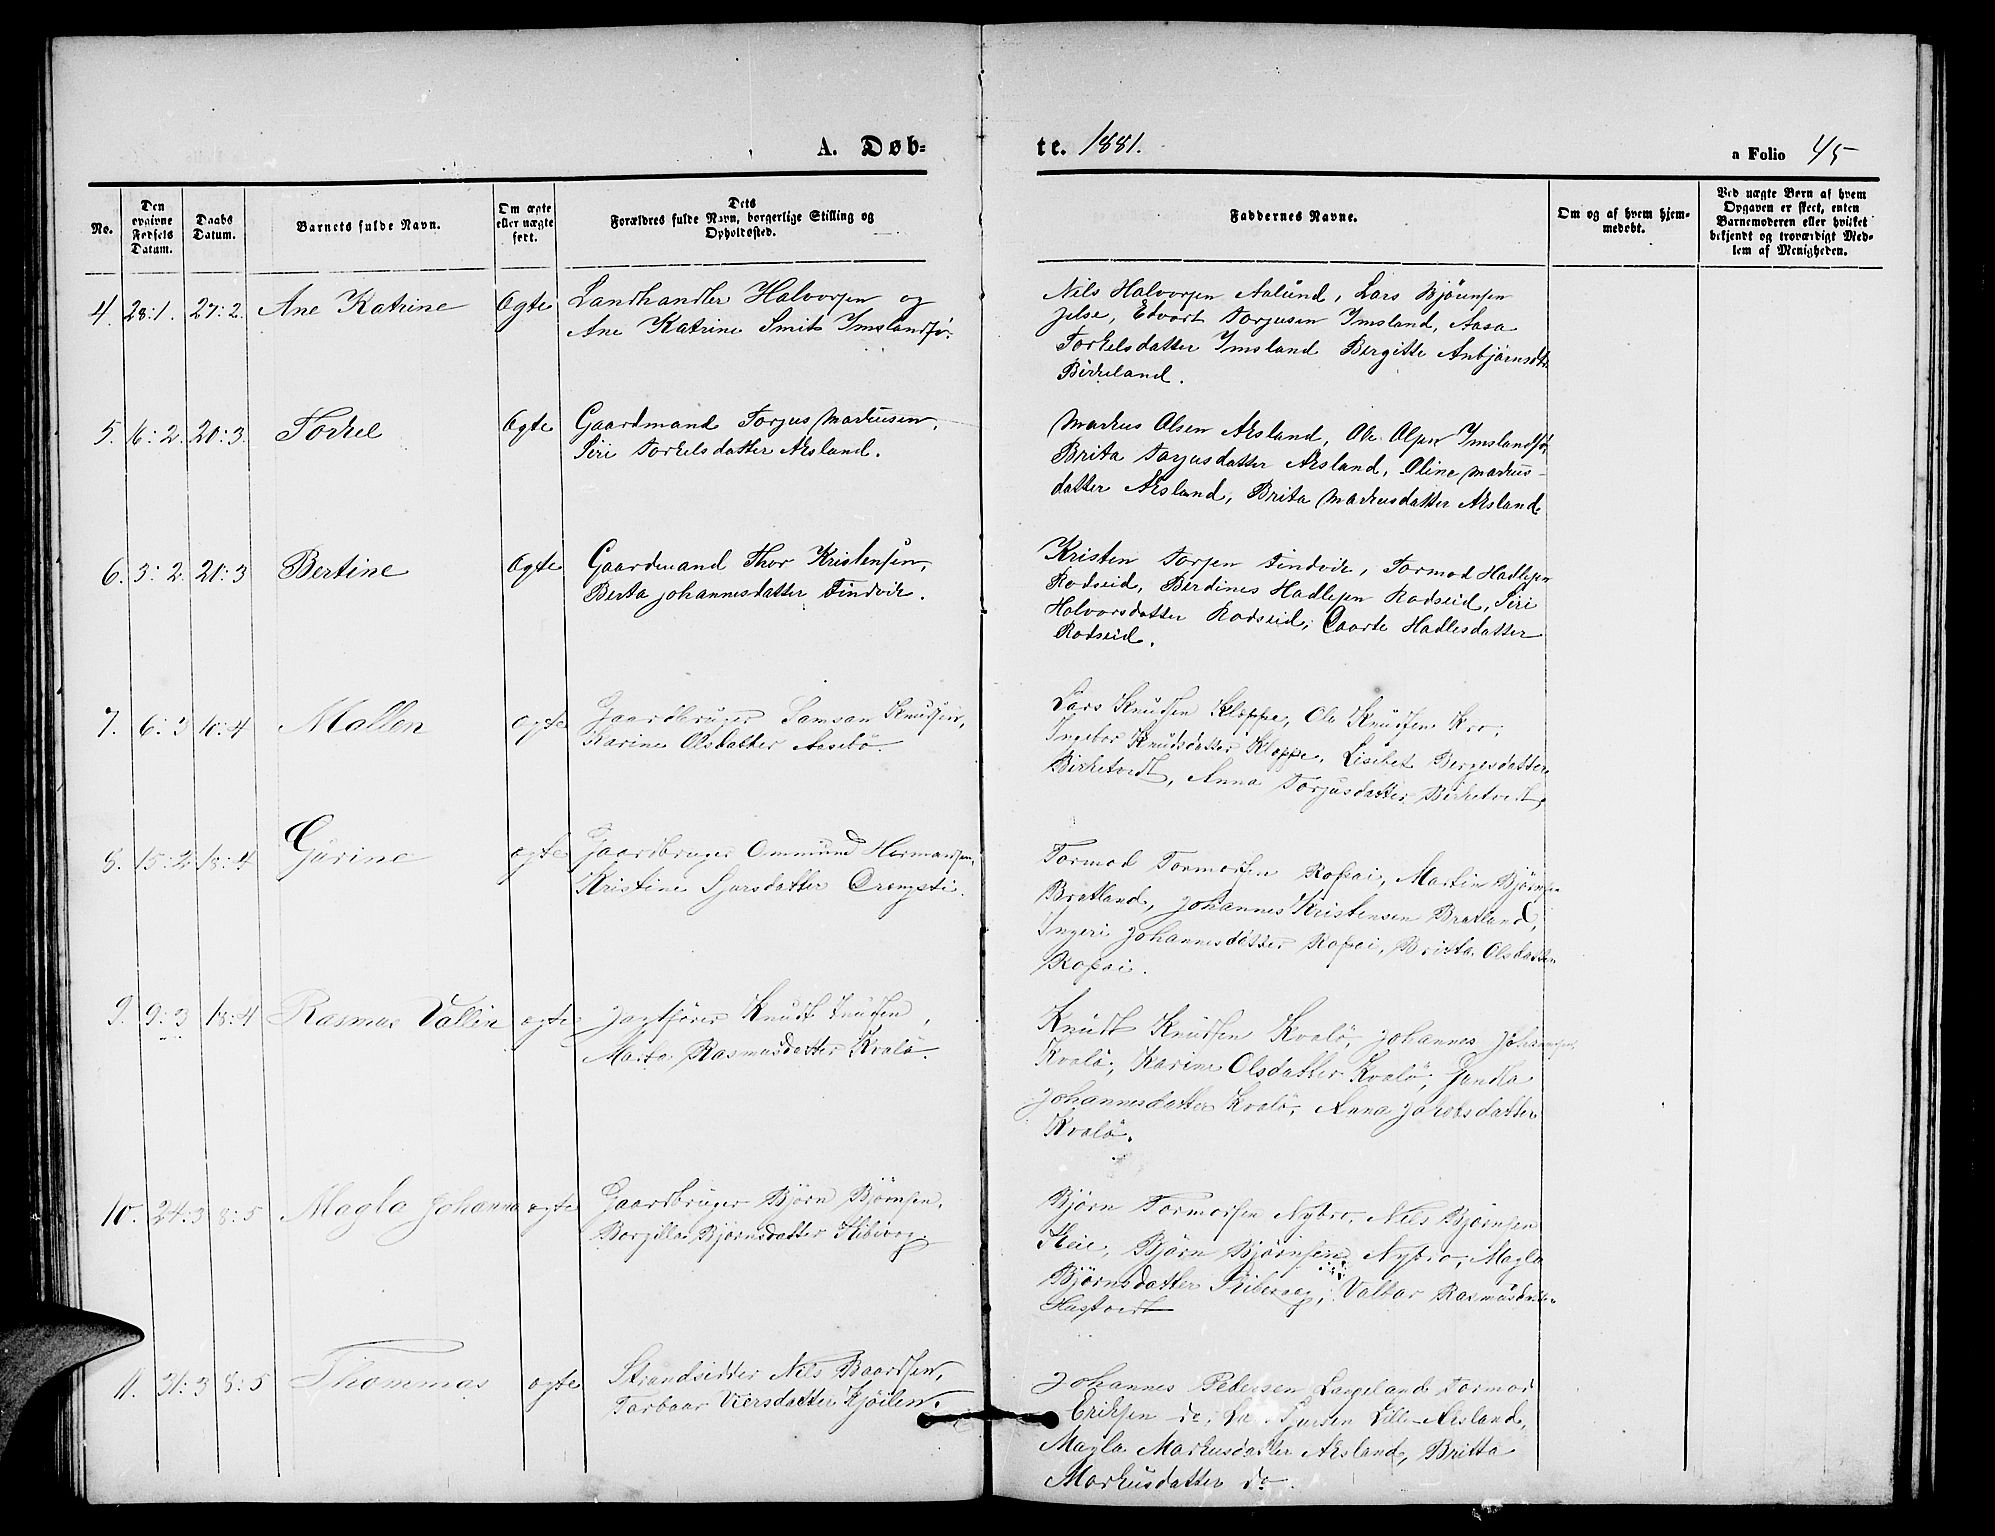 A. Døb-
te. 1881.
a Folio 45
No.
Den opgivne Fødsels Datum.
Daabs Datum.
Barnets fulde Navn.
Om ægte eller uægte født.
Dets Forældres fulde Navn, borgerlige Stilling og Opholdssted.
Faddernes Navne.
Om og af hvem hjemmedøbt.
Ved uægte Børn af hvem Opgaven er skeet, enten Barnemoderen eller hvilket bekjendt og troværdigt Medlem af Menigheden.
4. 28:1. 27:2. Ane Katrine Ogte Landhandler Halvorsen og
Ane Katrine Smits Imslandsjø.
Nils Halvorsen Aalund, Lars Bjørnsen
Jelse, Edvart Torjusen Imsland, Aasa
Torkelsdatter Imsland Bergitte Anbjørnsdtr
Birkeland.
5. 16:2. 20:3. Torkel Ogte Gaardmand Torjus Markusen,
Siri Torkelsdatter Aksland.
Markus Olsen Aksland, Ole Olsen Imslandsjø,
Brita Torjusdatter Aksland, Oline Markus-
datter Aksland, Brita Markusdatter Aksland
6. 3:2. 20:3 Bertine Ogte Gaardmand Thor Kristensen,
Berta Johannesdatter Tindvik.
Kristen Torsen Tindvik, Tormod Hadlesen
Rodseid, Berdines Hadlesen Rodseid, Siri
Halvorsdatter Rodseid, Caarte Hadlesdatter
Rodseid.
7. 6:3 10:4 Mallen ogte Gaardbruger Samson Knudsen,
Karine Olsdatter Aasebö.
Lars Knudsen Kloppe, Ole Knudsen Kro,
Ingebor Knudsdatter Kloppe, Lisebet Bergesdatter
Birketvedt, Anna Torjusdatter Birketvedt,
8. 15:2 18:4 Gurine ogte Gaardbruger Ommund Hermansen,
Kristine Sjursdatter Drengsti.
Tormod Tormodsen Ropai, Martin Bjørnsen
Bratland, Johannes Kristensen Bratland,
Ingeri Johannesdatter Ropai, Brita Olsdatter
Ropai.
9. 9:3 18:4 Rasmus Vallin ogte Jagtfører Knudt Knudsen,
Marta Rasmusdatter Kvalö.
Knudt Knudsen Kvalö, Johannes Johansen
Kvalö, Karine Olsdatter Kvalö,
Johannesdatter Kvalö, Anna Jakobsdatter
Kvalö.
10. 24:3 8:5 Magla Johanna ogte Gaardbruger Björn Björnsen,
Borgilla Björnsdatter Skibevog.
Björn Tormodsen Nybro, Nils Bjørnsen
Skeie, Björn Björnsen Nybro, Magla
Björnsdatter Skibevog, Valbor Rasmusdatter
Hustvedt
11. 31:3 8:5 Thommas ogte Strandsidder Nils Baardsen,
Torbaar Viersdatter Kjöilen.
Johannes Pedersen Langeland Tormod
Eriksen do, Sjursen Lille-Aksland,
Magla Markusdatter Aksland, Britta
Markusdatter do.